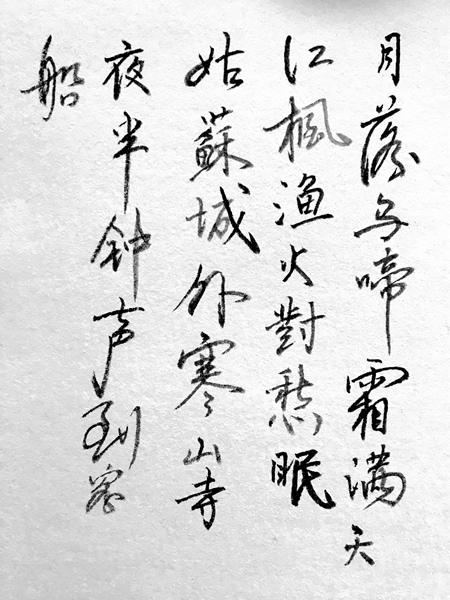 月落乌啼霜满天
江枫渔火對愁眠
姑蘇城外寒山寺
夜半钟声到客
船